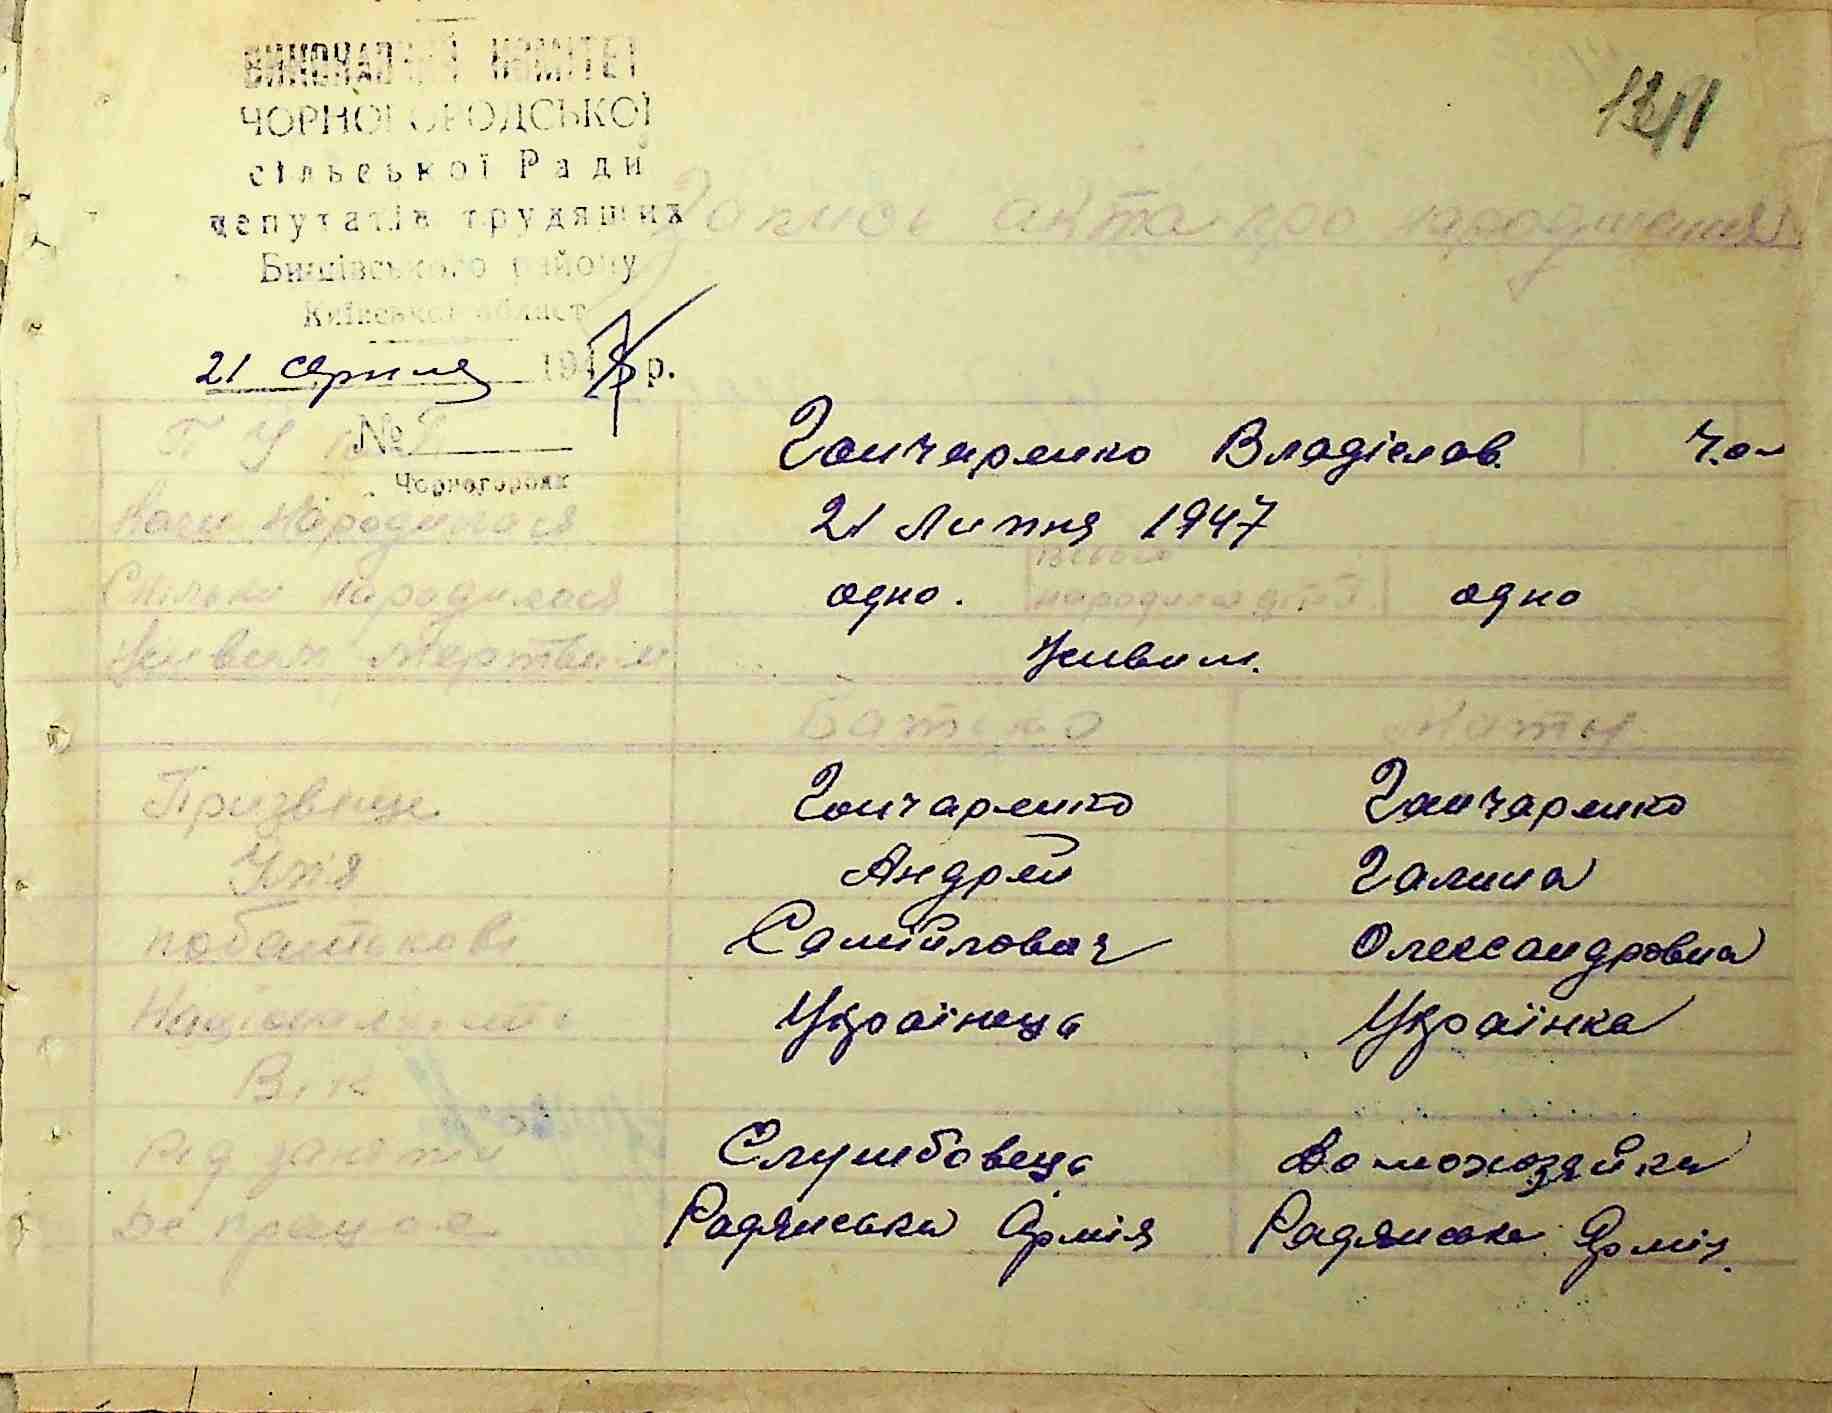 ВИКОНАВЧИЙ КОМІТЕТ
ЧОРНОГОРОДСЬКОЇ
сільської Ради
депутатів трудящих
Бишівського району
Київської област
Запись акта про народження
21 серпня 194 р.
№
Чорногородк
П У п Гончаренко Владіслав. Чол
Коли народилося 21 Липня 1947
Скільки народилося одно. народила дітей одно
Живим мертвим Живим.
Батько Мати
Призвеще Гончаренко Гончаренко
Імія Андрей Галина
побатькові Самійлович Олександровна
Національність Українець Українка
Вік
Рід заняття Службовець Домохозяйка
Де працює Радянська Армія Радянська Армія.